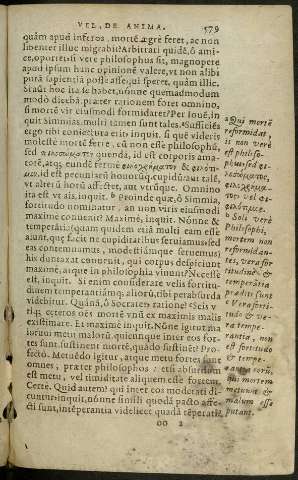 VEL, DE ANIMA. 579
quàm apud inferos, mortē ægrè feret, ac non
libenter illuc migrabit? Arbitrari quidē, ô ami-
ce, oportet: si verè philosophus sit, magnopere
apud ipsum hunc opinionē valere, vt non alibi
purā sapientiā posse assequi speret, quàm illic.
hoc ita se habet, nónne quemadmodum
modò dicebā, præter rationem foret omnino,
si mortē vir eiusmodi formidaret? Per Iouē, in-
quit Simmias, multi tamen sunt tales. Sufficiēs
ergo tibi coniectura erit, inquit, si quē videris
molestè mortē ferre, eū non esse philosophū,
sed quendā, id est corporis ama-
torē, atq; eundē fermè
id est pecuniarū honorūq; cupidū: aut talē,
vt alterū horū affectet, aut vtrūque. Omnino
ita est vt ais, inquit. b Proinde quæ, ô Simmia,
fortitudo nominatur, an non viris eiusmodi
maximè conuenit? Maximè, inquit. Nónne &
temperātia (quam quidem etiā multi eam esse
aiunt, quę facit ne cupiditatibus seruiamus: sed
eas contemnamus, modestiāmque seruemus)
his duntaxat conuenit, qui corpus despiciunt
maximè, atque in philosophia viuunt? Necesse
est, inquit. Si enim considerare velis fortitu-
dinem temperantiāmq; aliorū, tibi perabsurda
videbitur. Quánā, ô Socrates ratione? Scis v-
tiq; cęteros oēs mortē vnū ex maximis malis
existimare. Et maximè inquit. Nónne igitur ma
iorum metu malorū, quicunque inter eos for-
tes sunt, sustinent mortē, quādo sustinēt? Pro-
fectò. Metuēdo igitur, atque metu fortes sunt
omnes, præter philosophos: etsi absurdum
est metu, vel timiditate aliquem esse fortem.
Certè. Quid autem? qui inter eos moderati di-
cuntur, inquit, nónne simili quodā pacto affe-
cti sunt, intēperantia videlicet quadā tēperati?
oo 2
a Qui mortē
reformidat,
is non verè
est philoso-
phus: sed
vel
b Soli verè
Philosophi,
mortem non
reformidan-
tes, vera for-
titudine &
temperātia
præditi sunt
c Vera forti-
tudo & ve-
ra tempe-
rantia, non
est fortitudo
& tempe-
rantia eorū,
qui mortem
metuunt &
malum esse
putant.